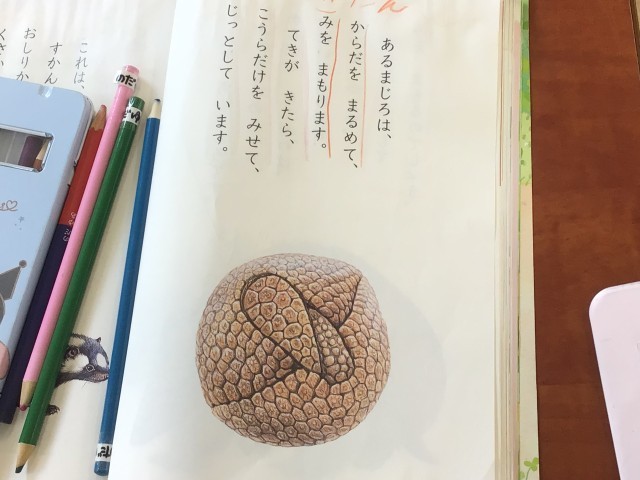 あるまじろは、
からだを まるめて、
みを まもります。
てきが きたら、
こうらだけを みせて、
じっとして います。
これは、
すかん
おしりか